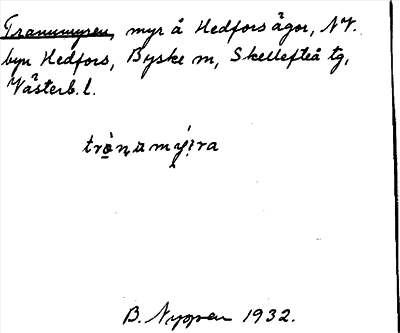 Tranumyren, myr å Hedfors ägor, N.V.
byn Hedfors, Byske sn, Skellefteå tg,
Västerb. l.
trò̱ṇamýi̩ra
B. Nygren 1932.